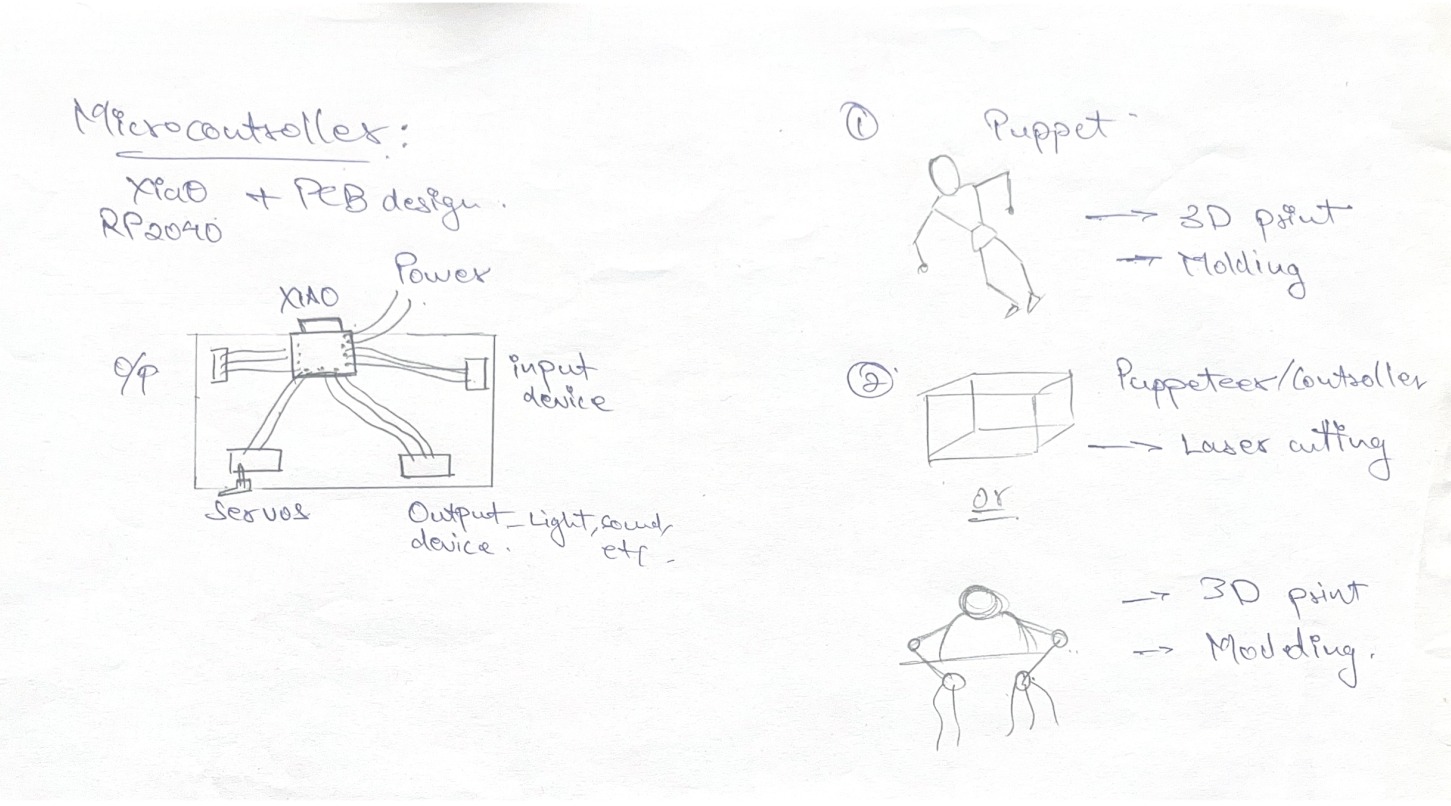 Microcontroller:
XiaO + PCB design.
RP2040
Power
XIAO
O/P
input
device
Servos
Output - Light, sound,
device. etc.
① Puppet
→ 3D print
→ Molding
② Puppeteer/Controller
→ Laser cutting
or
→ 3D print
→ Moulding.